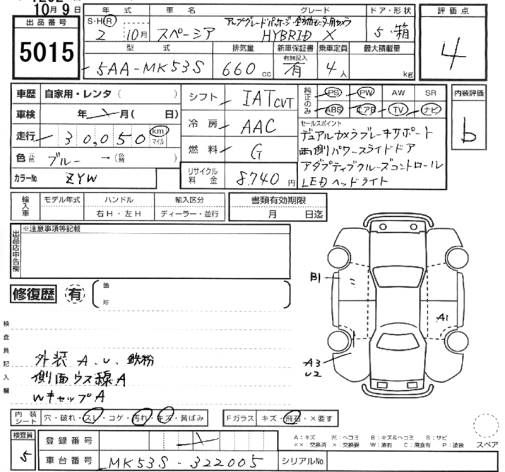 10月9日
出品番号
5015
年式 車名 グレード ドア・形状
S・H・R 2年 10月 スペーシア HYBRID X 5・箱
評価点
4
型式 排気量 新車保証書 乗車定員 最大積載量
5AA-MK53S 660cc 有無記入 有 4人 kg
車歴 自家用・レンタ( )
車検 年 月 日
走行 30,050 km マイル
色 ブルー→( 色)
カラーNo ZYW
シフト IAT CVT
冷房 AAC
燃料 G
リサイクル料金 8740円
純正のみ PS PW AW SR
ABS エアB TV ナビ
セールスポイント
デュアルカメラブレーキサポート
両側パワースライドドア
アダプティブクルーズコントロール
LEDヘッドライト
内装評価
b
輸入車 モデル年式 ハンドル 輸入区分
右H・左H ディーラー・並行
書類有効期限
月 日迄
出品店申告欄 ※注意事項等記載
修復歴 有 箇所
検査員記入欄
外装 A.U. 鉄粉
側面ウス線A
WキャップA
B1
A1
A3
U2
内装シート 穴・破れ・スレ・コゲ・汚れ・キズ・黄ばみ
Fガラス キズ・飛石・×要す
A:キズ W:ヘコミ B:キズ&ヘコミ S:サビ
スペア
検査員 5
登録番号
車台番号 MK53S-322005
シリアルNo